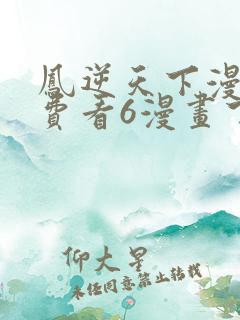 鳳逆天下漫
費看6漫畫
仰大星
未经同意禁止转载